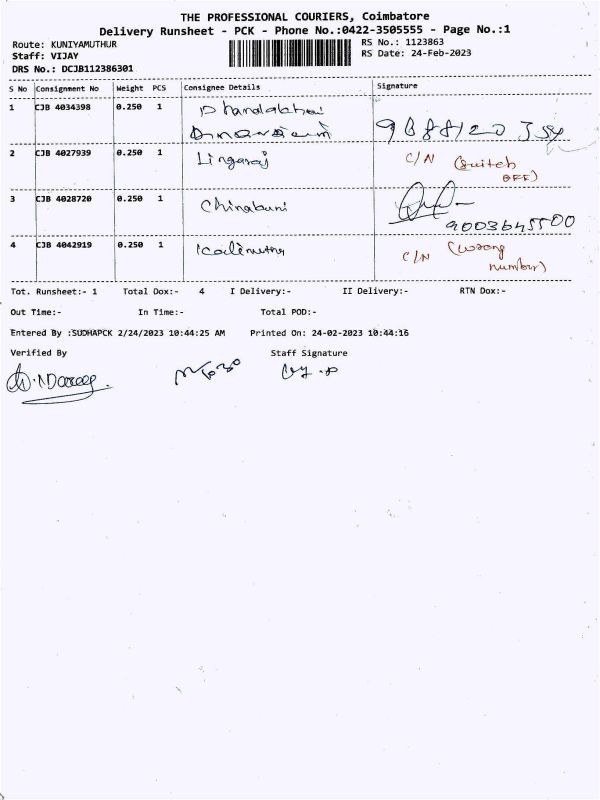 THE PROFESSIONAL COURIERS, Coimbatore
Delivery Runsheet - PCK - Phone No.:0422-3505555 - Page No.:1
Route: KUNIYAMUTHUR
RS No.: 1123863
Staff: VIJAY
RS Date: 24-Feb-2023
DRS No.: DCJB112386301
S No Consignment No Weight PCS Consignee Details Signature
1 CJB 4034398 0.250 1
2 CJB 4027939 0.250 1 Lingaraj C/N (Switch
OFF)
3 CJB 4028720 0.250 1
9003645500
4 CJB 4042919 0.250 1 C/N (wrong
number)
Tot. Runsheet:- 1 Total Dox:- 4 I Delivery:- II Delivery:- RTN Dox:-
Out Time:- In Time:- Total POD:-
Entered By :SUDHAPCK 2/24/2023 10:44:25 AM Printed On: 24-02-2023 10:44:16
Verified By Staff Signature